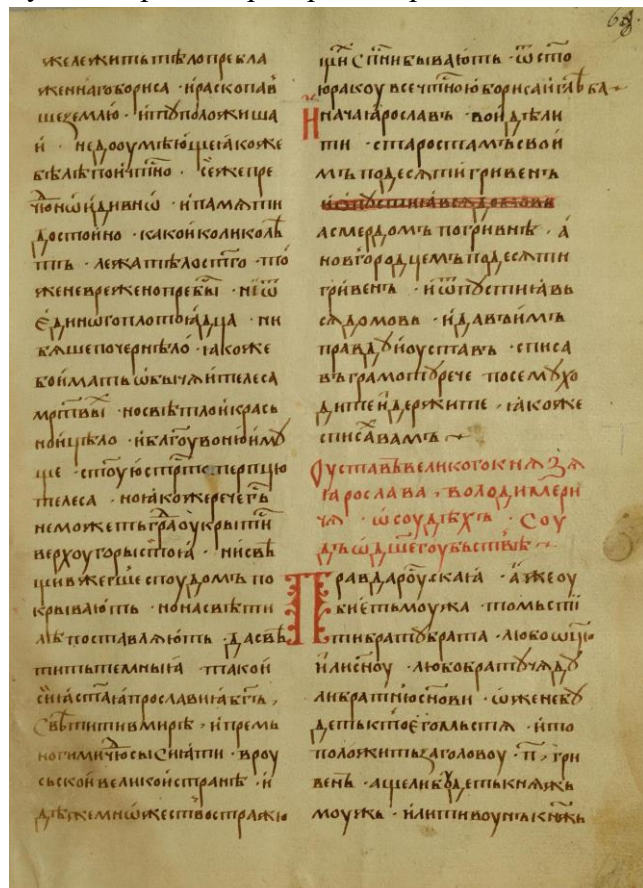 жележитьтѣлопребла
женнагобориса · ираскопав
шеземлю · итꙋположиша
и · недооумѣющеꙗкоже
бѣлѣпоичтно · сежепре
чюнѡидивнѡ · ипамѧти
достойно · какоиколиколѣ
тъ · лежатѣлостго · то
женевреженопребы · ниѿ
единогоплотоꙗдца · ни
бѧшепочернѣло · ꙗкоже
боиматьѡбычѧителеса
мртвы · носвѣтлоикрась
ноицѣло · иблагоувониоимꙋ
ще · стоую
телеса · ноꙗкожеречегъ
неможетьградоукрытисѧ
верхоугорыстоꙗ · нисвѣ
щивжегшеспоудомъпо
крывають · нонасвѣти
лѣпоставлѧють · дасвѣ
титьтемныꙗ такои
сиꙗстаꙗпрославиꙗбгъ,
свѣтитивмирѣ, ипремь
ногимичюсысиꙗти · вроу
сьскоивеликоистранѣ · и
дѣжемнѡжествостражю
щиспнибывають · ѿсто
юракоувсечтноюборисаиглѣба
Иначаꙗрославъ · воидѣли
ти · старостамъсвои
мъподесѧтигривенъ
асмердомъпогривнѣ, а
новгородцемъподесѧти
гривенъ · иѿпустиꙗвь
сѧдомовь · идавъимъ
правдꙋиоуставъ · списа
въграмотꙋрече посемꙋхо
дитеидержите, ꙗкоже
списавамъ
Оуставъвеликогокнѧзѧ
ꙗрослава, володимери
чѧ · ѡсоудѣхъ · Соу
дъѡдшегоубьствѣ
Правдароускаꙗ · ажеоу
биетьмоужамоужь томьсти
тибратꙋбрата · любоѡцю
илисноу · любобратꙋчѧдꙋ
либратнюснови · ѡженебꙋ
детьктоегомьстѧ · ито
положитьзаголовоу · п, гри
венъ · ащелибꙋдетькнѧжь
моужь · илитивоунъкнѧжь